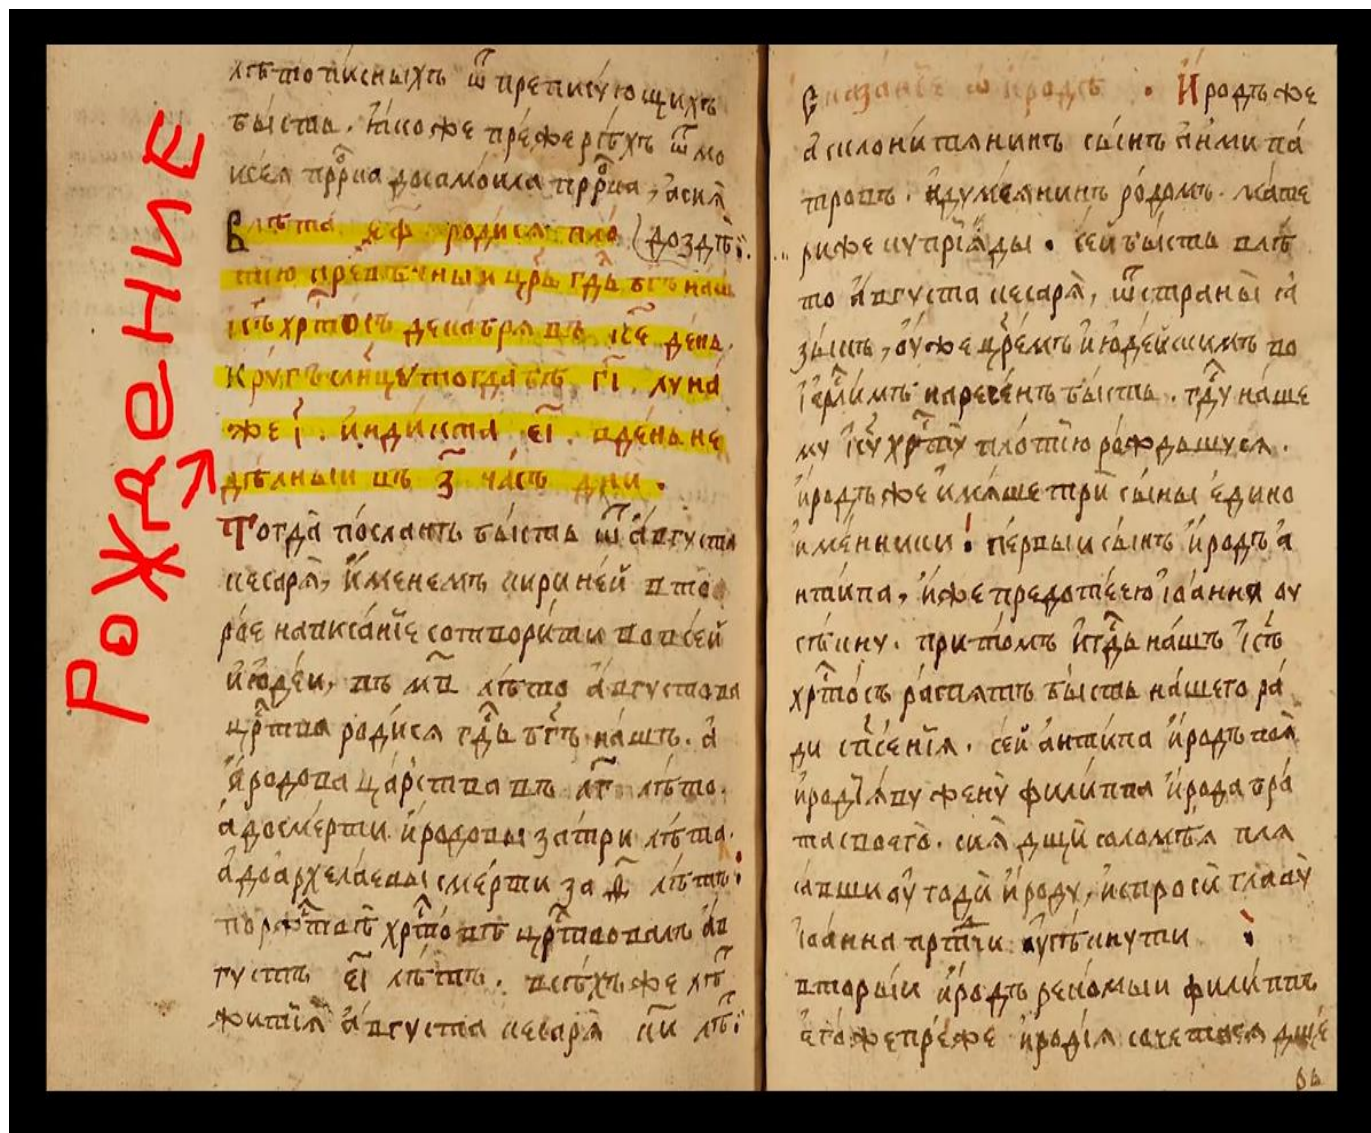 РОЖДЕНИЕ
лѣтописныхъ ѿ преписꙋющихъ
бы́сть. ꙗ́коже пре́же рѣ́хъ ѿ мо
исе́я прⷪ҇рка досамоила прⷪ҇рка, аскꙗ̀
Влѣта ҂єф роди́ся пло (доздѣ̀
тїю превѣчныи цр҃ь гдⷭ҇ь бг҃ъ нашъ
іс҃ъ хрⷭ҇тосъ декабря въ к҃е де́нь.
Крꙋгъ сл҃нцꙋ тогда̀ бѣ̀ г҃і. лꙋна́
же і҃. и҆нди́кта е҃і. вде́нь не
дѣлныи въ з҃ ча́съ дни.
Тогда̀ по́сланъ бы́сть ѿ а́вгꙋста
кесарѧ̀, и҆́менемъ кирине́й в то
ро́е написа́нїе сотвори́ти вовсе́й
и҆юде́и, въ м҃в лѣ́то а́вгꙋстова
црⷭ҇тва роди́ся гдⷭ҇ь бг҃ъ на́шъ. а҆
и҆́родова ца́рства въ л҃г лѣ́то.
а҆досме́рти и҆́родовы за́три лѣ́та.
а҆доархела́евы сме́рти за лѣ́тъ
порⷤ҇твѣ̀ хрⷭ҇то́вѣ црⷭ҇твовалъ а҆в
гꙋстъ е҃і лѣ́тъ. всѣ́хъ же лѣ́
житїя̀ а҆́вгꙋста кесарѧ̀ лѣ́
Сказанїе ѡ и҆родѣ. И҆́родъ же
а҆склони́тянинъ сы́нъ а҆нтипа́
тровъ. и҆дꙋме́янинъ ро́домъ. ма́те
ри же кꙋпрїѧ́ды. се́й бы́сть влѣ̀
то а́вгꙋста кесарѧ̀, ѿстраны̀ ꙗ҆
зы́къ, оу҆́же цр҃е́мъ и҆юде́йскимъ во
і҆ерⷭ҇ли́мъ нарече́нъ бы́сть. гдⷭ҇ꙋ на́ше
мꙋ і҆с҃ꙋ хрⷭ҇тꙋ̀ пло́тїю ра́ждьшꙋся.
и҆́родъ же и҆мя́ше трѝ сы́ны є҆ди́но
и҆ме́нники. пе́рвыи сы́нъ и҆́родъ а҆
нти́па, и҆́же предоте́чю і҆ѡа́нна оу
сѣ́кнꙋ. при то́мъ и҆ гдⷭ҇ь на́шъ і҆с҃ъ
хрⷭ҇то́съ ра́спятъ бы́сть на́шего ра́
ди спⷭ҇е́нїя. се́й а҆нти́па и҆́родъ поя̀
и҆родїя́дꙋ женꙋ̀ фили́ппа и҆́рода бра́
та своего̀. сиѧ̀ дщѝ соломѣ́я пля
са́вши оу҆годѝ и҆́родꙋ, и҆спросѝ главꙋ̀
і҆ѡа́нна прⷣ҇те́чи оу҆сѣкнꙋти
вторы́и и҆́родъ реко́мыи фили́ппъ
є҆го́же пре́же и҆роді́я сочета́ся дще́